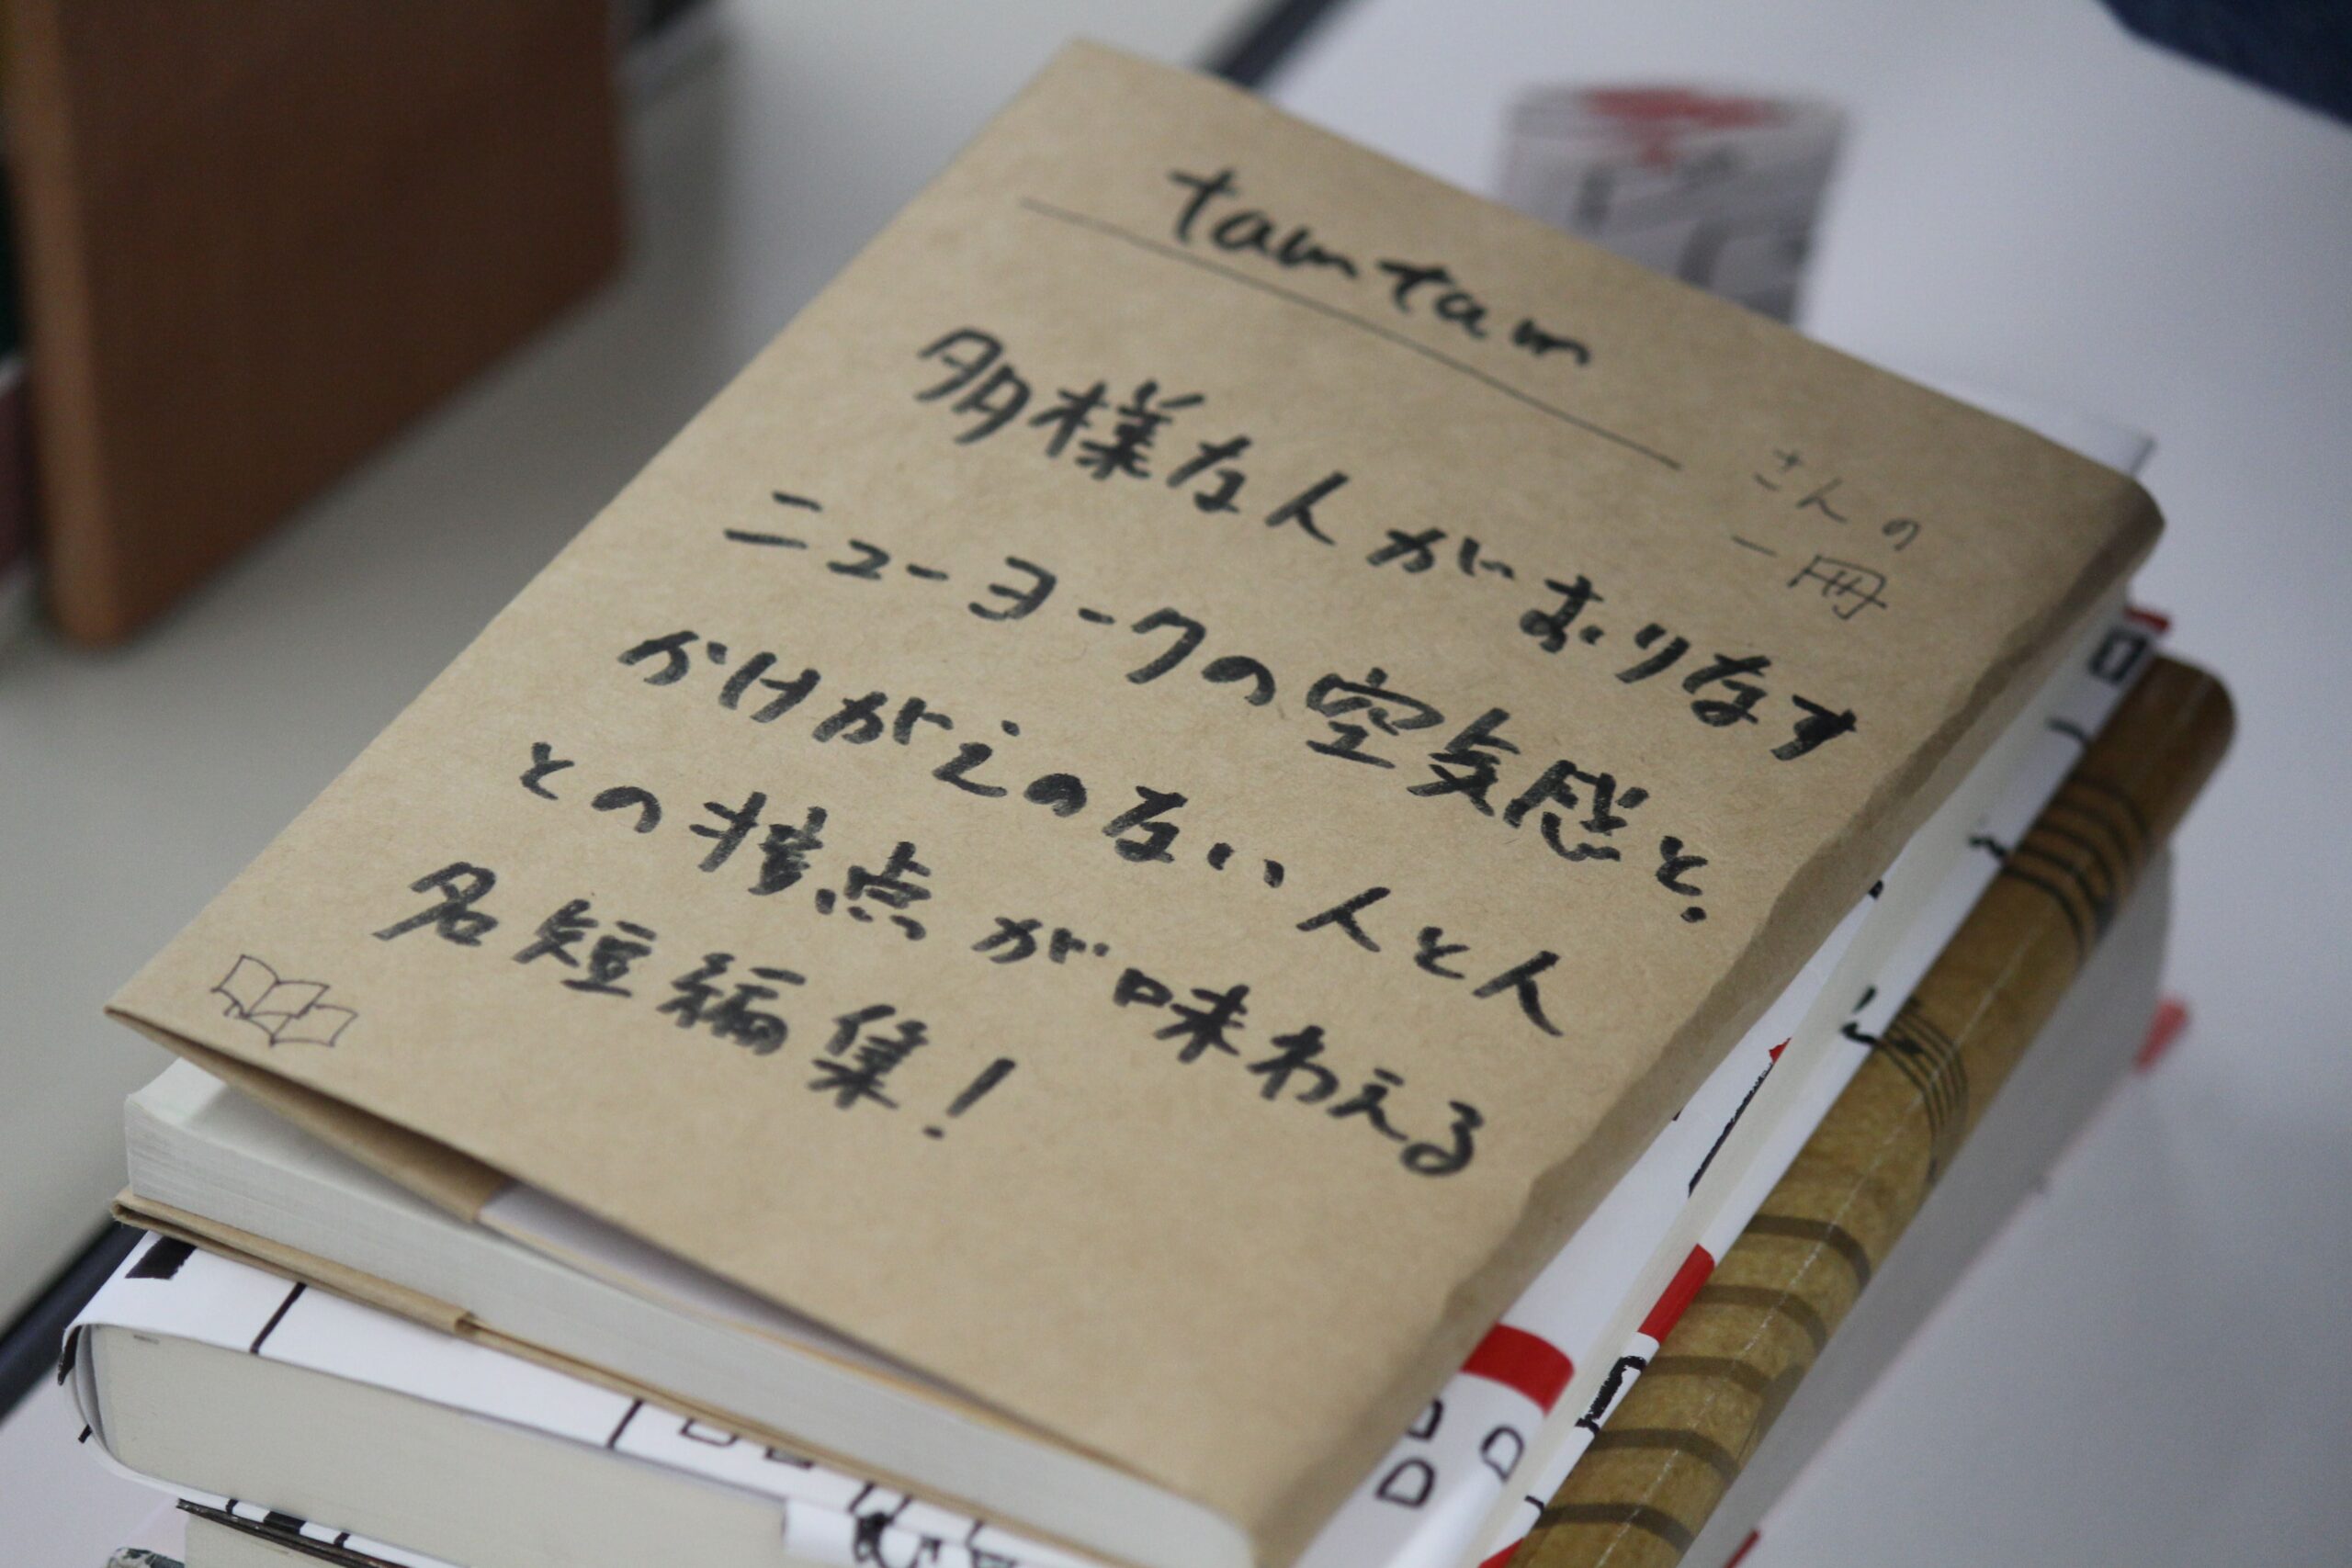 tamtam
さんの
一冊
多様な人がおりなす
ニューヨークの空気感と、
かけがえのない人と人
との接点が味わえる
名短編集！